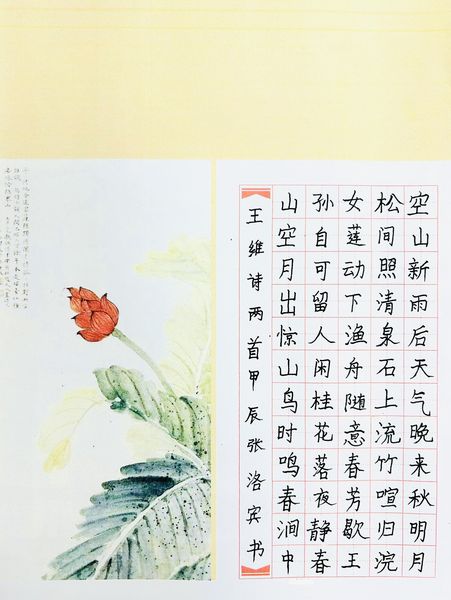 空山新雨后天气晚来秋明月
松间照清泉石上流竹喧归浣
女莲动下渔舟随意春芳歇王
孙自可留人闲桂花落夜静春
山空月出惊山鸟时鸣春涧中
王维诗两首甲辰张洛宾书